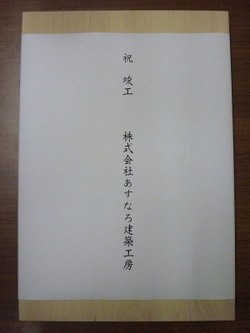 祝　竣工
株式会社あすなろ建築工房